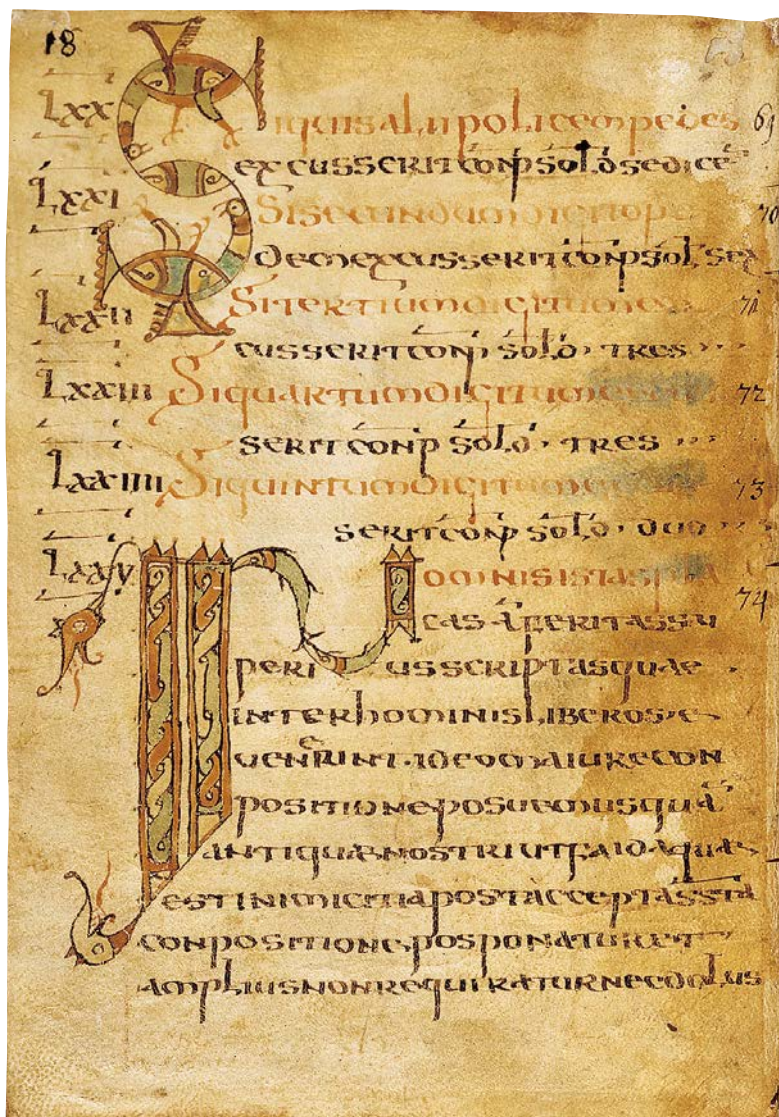 18
LXX Siquis alii policem pedes 69
excusserit conp sold sedice
LXXI Si secundum digito 70
dem excusserit conp sol sex
LXXII Si tertium digitum ex 71
cusserit conp sold · tres
LXXIII Si quartum digitum 72
serit conp sold · tres
LXXIIII Si quintum digitum 73
serit conp sold · duo
LXXV In omnis istas pla 74
cas a feritas su
perius scriptas quae
inter hominis liberos e
venerint · ideo maiure con
positione posuemus qua
antiquae nostri ut faida quae
est inimicitia post acceptas sta
conpositione posponatur et
amplius non requiratur nec dolus